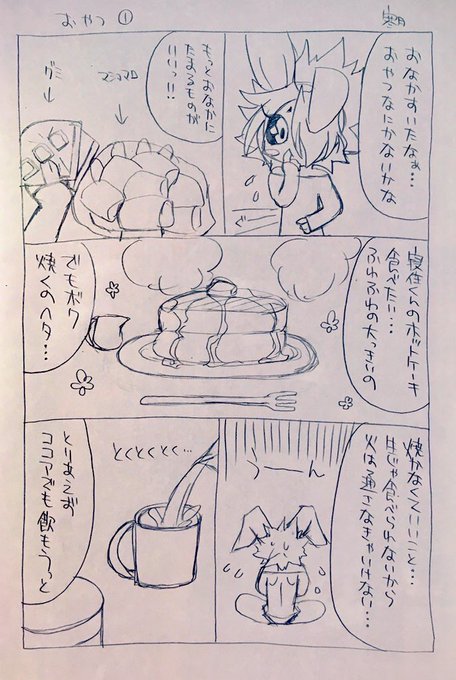 おやつ ①
おなかすいたなぁ…
おやつなにかないかな
ぐ〜
もっとおなかに
たまるものが
いいっ!!
マシュマロ
グミ
寝住くんのホットケーキ
食べたい…
ふわふわの大っきいの
でもボク
焼くのヘタ…
焼かなくていいこと…
生じゃ食べられないから
火は通さなきゃいけない…
うーん
とくとくとく…
とりあえず
ココアでも飲もうっと